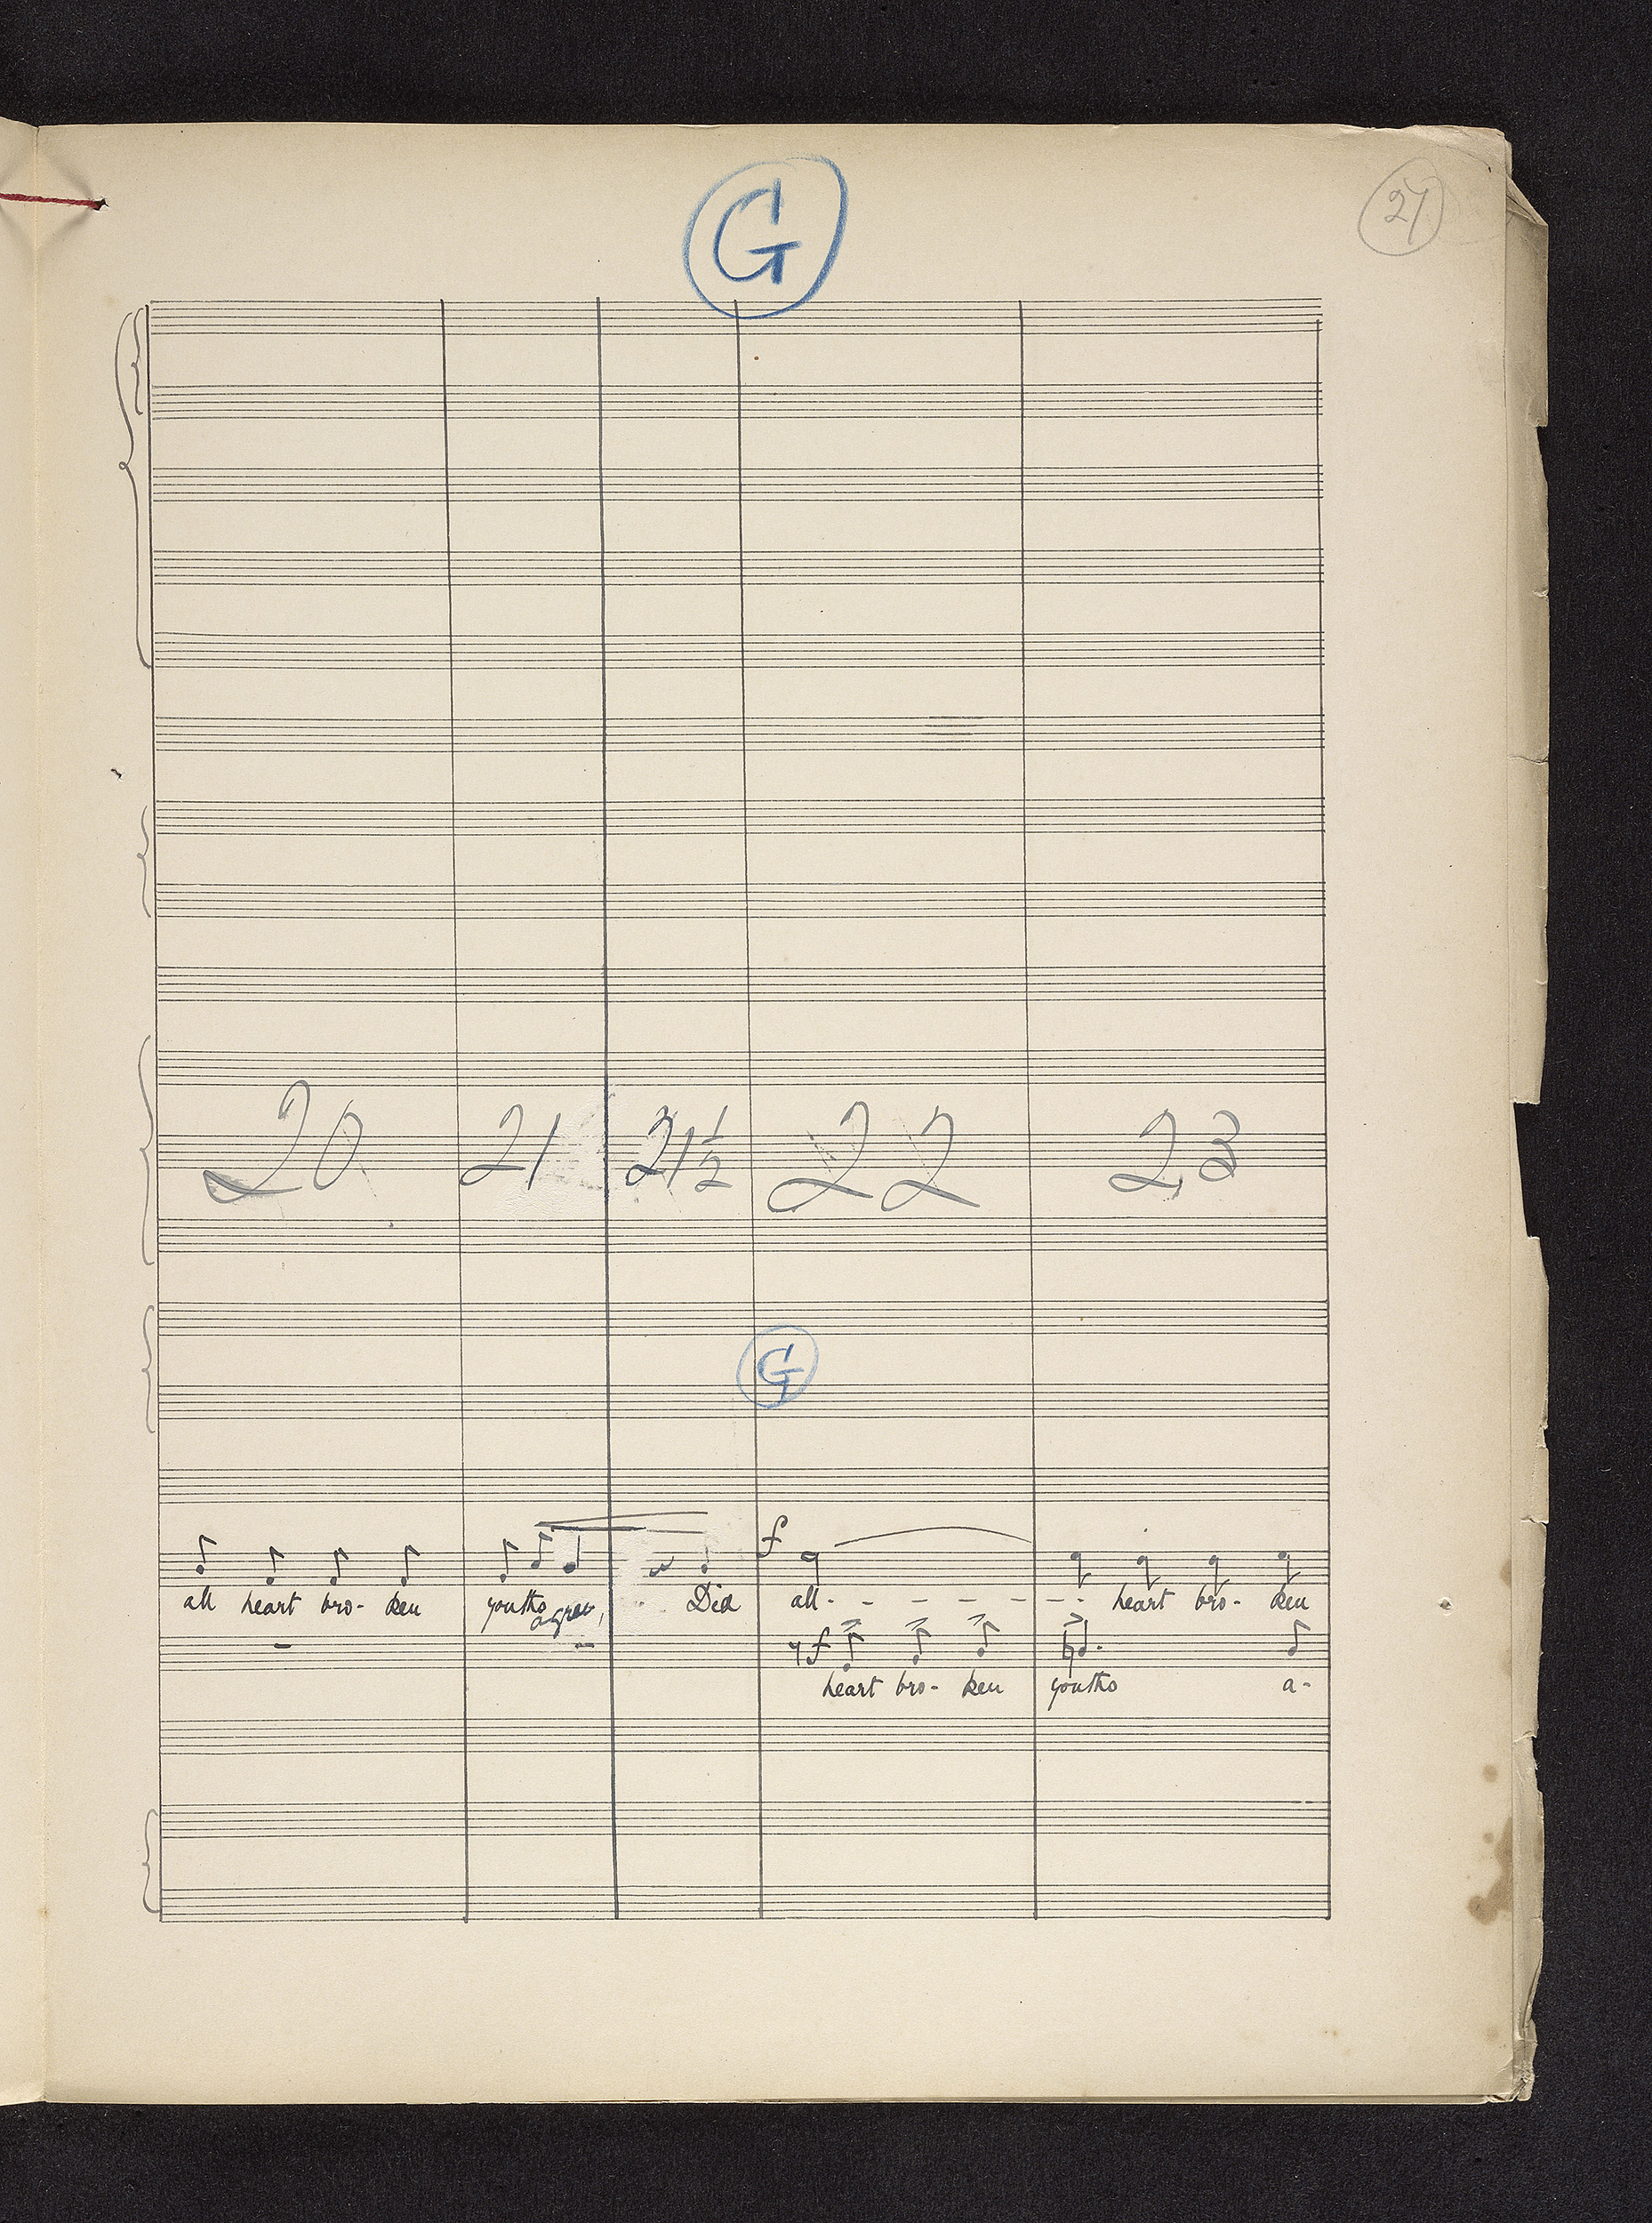 G
27
20 21 21½ 22 23
G
f
all heart bro- ken youths agree, Did all - - - - - - - heart bro- ken
f
heart bro- ken youths a-